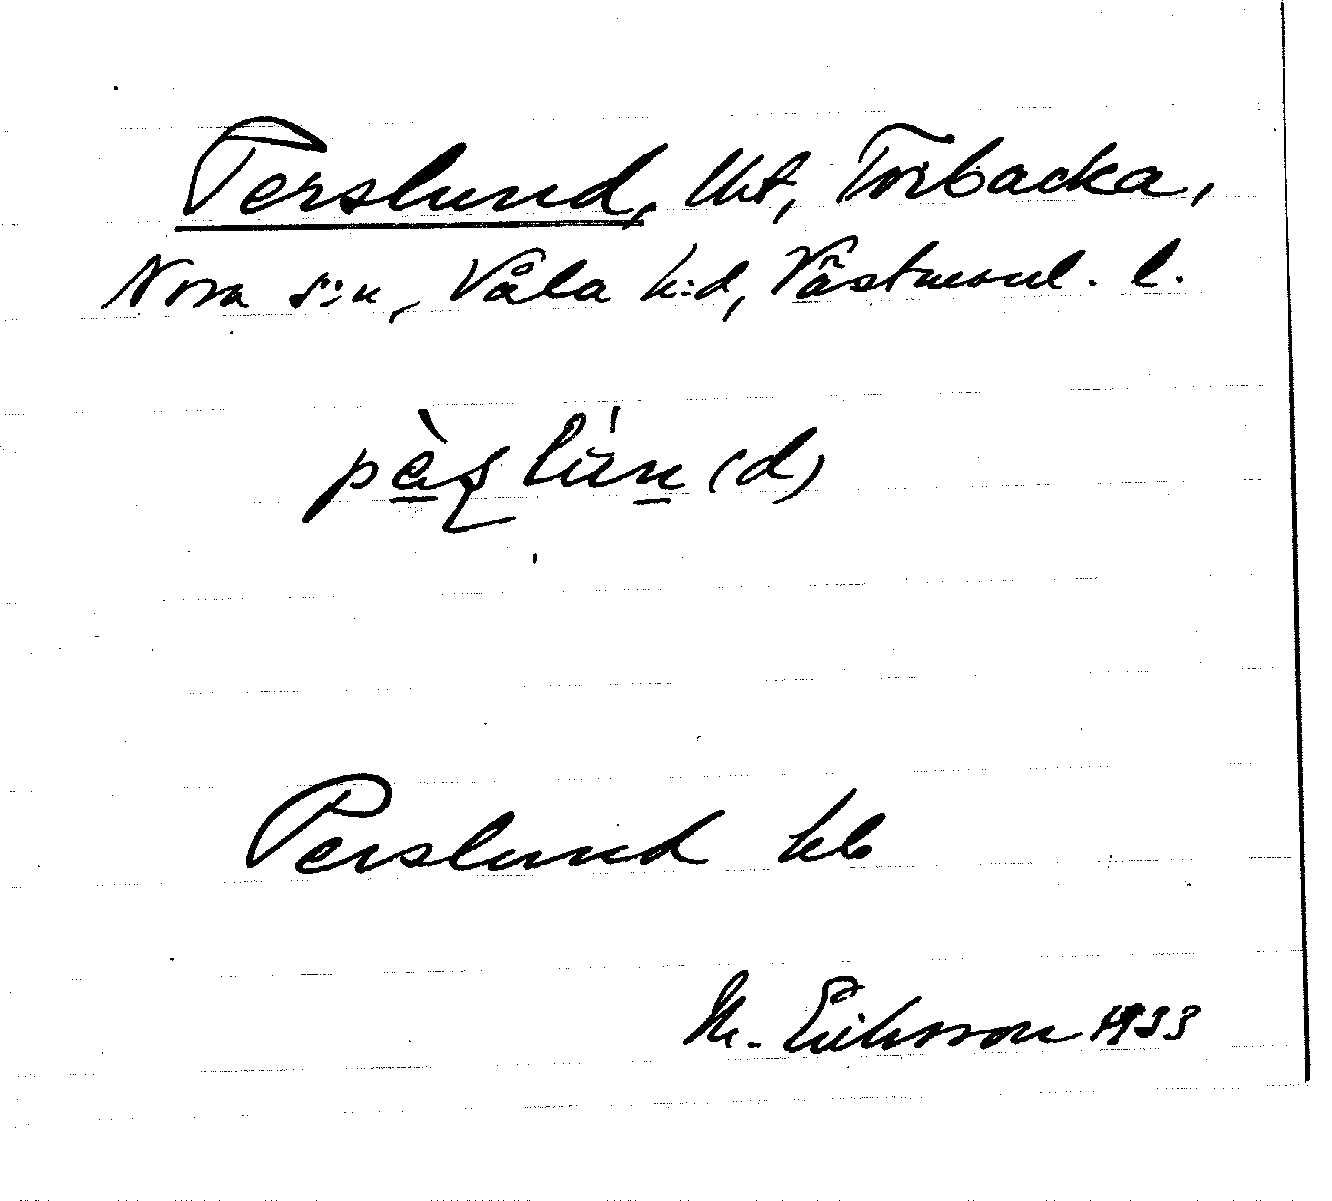 Perslund, lht, Torbacka,
Nora s:n, Våla h:d, Västmanl. l.
pàşlún(d)
Perslund hb
M. Eriksson 1933